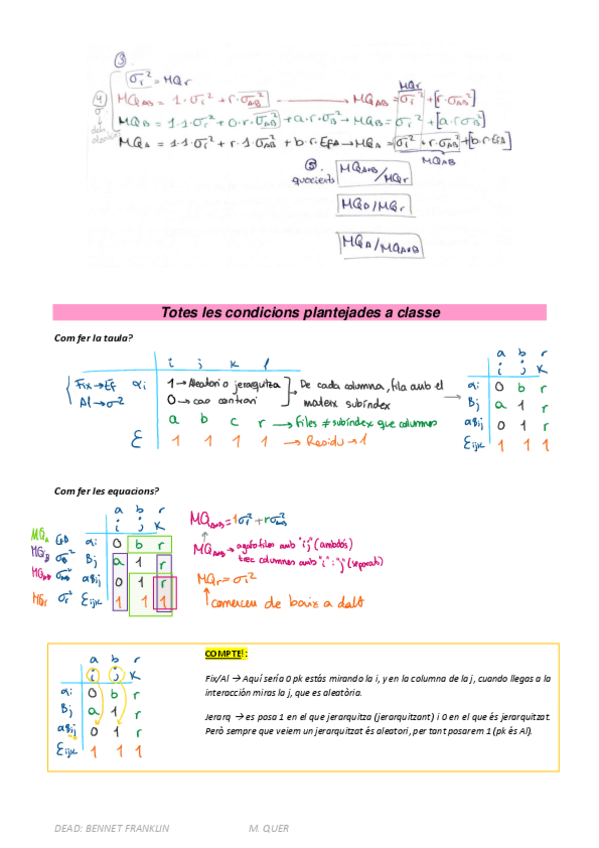 ③
σr² = MQr
④ MQAB = 1·σr² + r·σAB² → MQAB = σr² + [r·σAB²]
MQr
MQB = 1·1·σr² + 0·r·σAB² + a·r·σB² → MQB = σr² + [a·r·σB²]
MQA = 1·1·σr² + r·1·σAB² + b·r·EFA → MQA = σr² + r·σAB² + [b·r·EfA]
MQAB
⑤ quocients MQAB/MQr
MQB/MQr
MQA/MQAB
Totes les condicions plantejades a classe
Com fer la taula?
i j k l
Fix→Ef αi 1→Aleatori o jerarquitza De cada columna, fila amb el
Al→σ² 0→cas contrari mateix subíndex
a b c r → files ≠ subíndex que columnes
ε 1 1 1 1 → Residu→1
a b r
i j K
αi 0 b r
Bj a 1 r
αβij 0 1 r
Eijk 1 1 1
Com fer les equacions?
a b r
i j K
MQA αi 0 b r
MQB σB² Bj a 1 r
MQAB σAB² αβij 0 1 r
MQr σr² Eijk 1 1 1
MQAB = 1σr² + rσAB²
MQAB → agafo files amb "ij" (ambdós)
trec columnes amb "i" "j" (separats)
MQr = σr²
començeu de baix a dalt
a b r
i j K
αi 0 b r
Bj a 1 r
αβij 0 1 r
Eijk 1 1 1
COMPTE!:
Fix/Al → Aquí sería 0 pk estás mirando la i, y en la columna de la j, cuando llegas a la
interacción miras la j, que es aleatòria.
Jerarq → es posa 1 en el que jerarquitza (jerarquitzant) i 0 en el que és jerarquitzat.
Però sempre que veiem un jerarquitzat és aleatori, per tant posarem 1 (pk és Al).
DEAD: BENNET FRANKLIN M. QUER